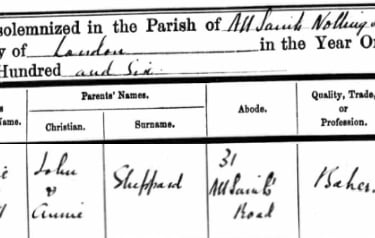 solemnized in the Parish of All Saints Notting
y of London in the Year O
Hundred and Six
Parents' Names.
Abode.
Quality, Trade,
or
Profession.
Name.
Christian.
Surname.
John
&
Annie
Sheppard
31
All Saints'
Road
Baker.